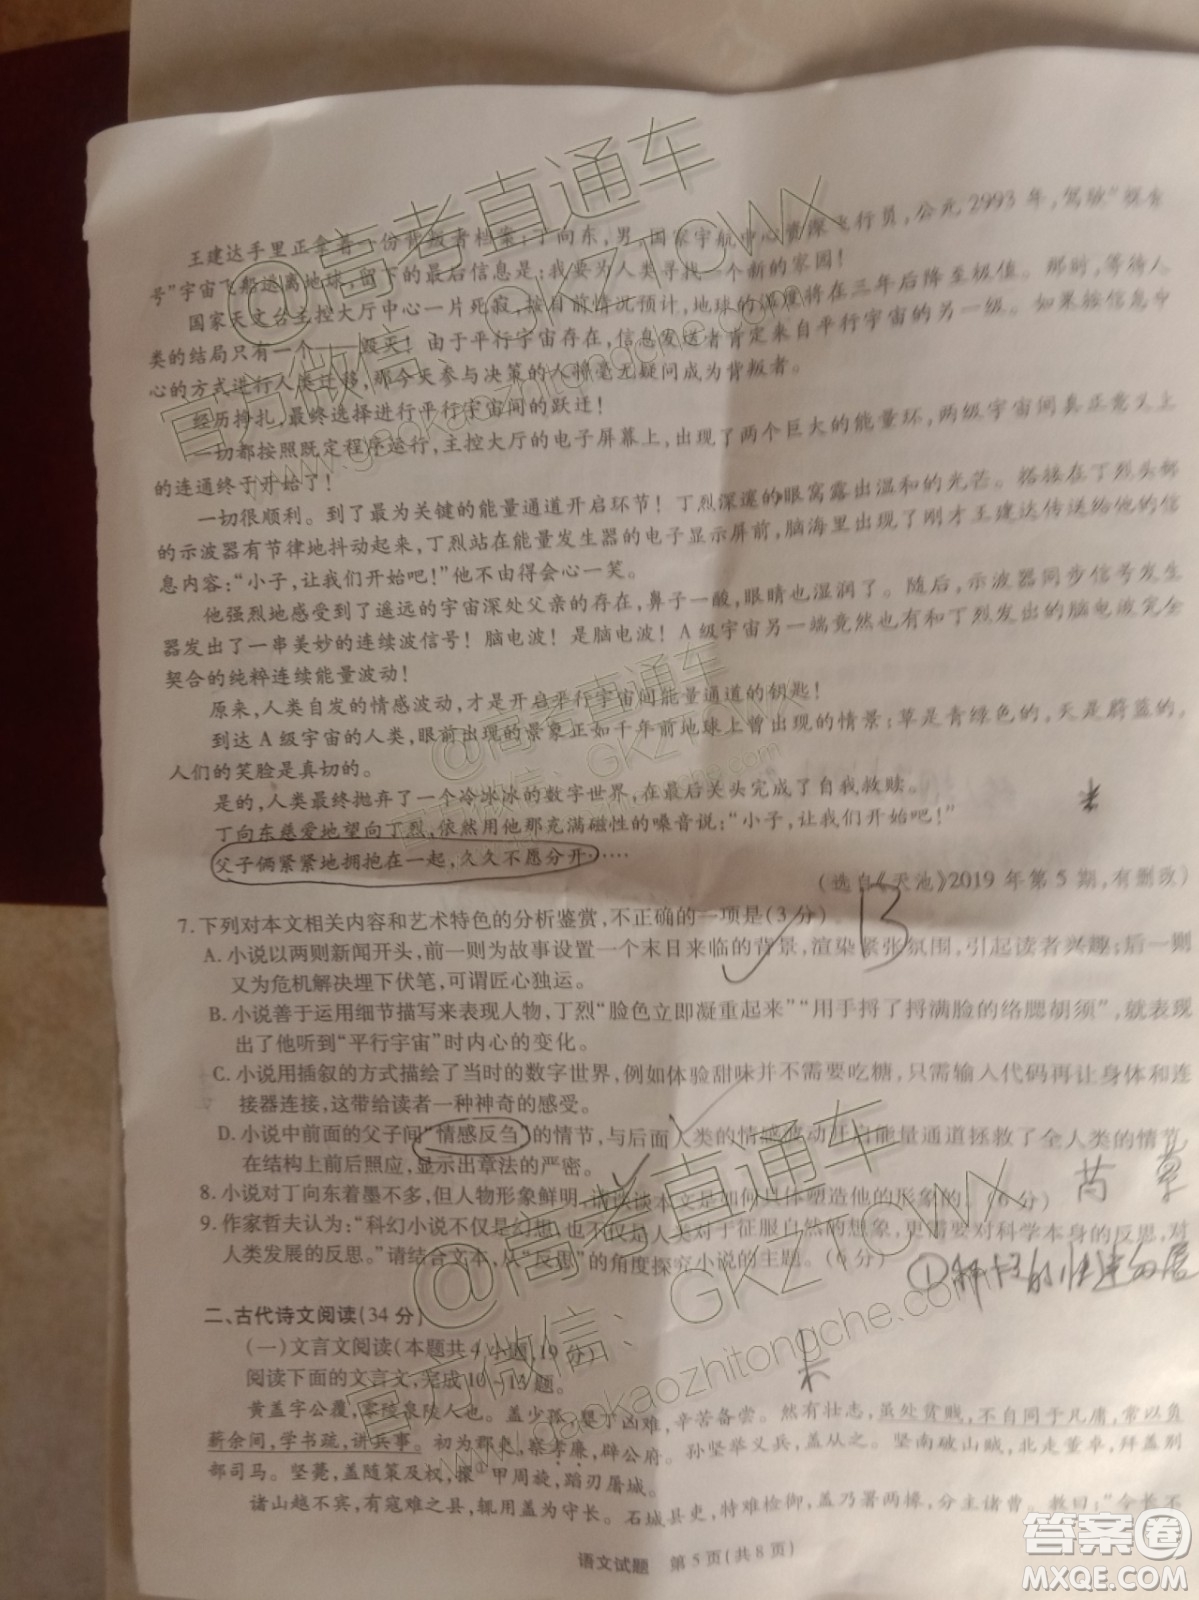 王建达手里正拿着一份背叛者档案:丁向东,男,国家宇航中心资深飞行员,公元2993年,驾驶"探索
号"宇宙飞船远离地球,留下的最后信息是:我要为人类寻找一个新的家园!
国家天文台主控大厅中心一片死寂,按目前情况预计,地球的温度将在三年后降至极值。那时,等待人
类的结局只有一个——毁灭!由于平行宇宙存在,信息发送者肯定来自平行宇宙的另一级。如果按信息中
心的方式进行人类迁移,那今天参与决策的人将毫无疑问成为背叛者。
经历挣扎,最终选择进行平行宇宙间的跃迁!
一切都按照既定程序运行,主控大厅的电子屏幕上,出现了两个巨大的能量环,两级宇宙间真正意义上
的连通终于开始了!
一切很顺利。到了最为关键的能量通道开启环节!丁烈深邃的眼窝露出温和的光芒。搭接在丁烈头部
的示波器有节律地抖动起来,丁烈站在能量发生器的电子显示屏前,脑海里出现了刚才王建达传送给他的信
息内容:"小子,让我们开始吧!"他不由得会心一笑。
他强烈地感受到了遥远的宇宙深处父亲的存在,鼻子一酸,眼睛也湿润了。随后,示波器同步信号发生
器发出了一串美妙的连续波信号!脑电波!是脑电波!A级宇宙另一端竟然也有和丁烈发出的脑电波完全
契合的纯粹连续能量波动!
原来,人类自发的情感波动,才是开启平行宇宙间能量通道的钥匙!
到达A级宇宙的人类,眼前出现的景象正如千年前地球上曾出现的情景:草是青绿色的,天是蔚蓝的,
人们的笑脸是真切的。
是的,人类最终抛弃了一个冷冰冰的数字世界,在最后关头完成了自我救赎。
丁向东慈爱地望向丁烈,依然用他那充满磁性的嗓音说:"小子,让我们开始吧!"
父子俩紧紧地拥抱在一起,久久不愿分开……
(选自《天池》2019年第5期,有删改)
7.下列对本文相关内容和艺术特色的分析鉴赏,不正确的一项是(3分) B
A.小说以两则新闻开头,前一则为故事设置一个末日来临的背景,渲染紧张氛围,引起读者兴趣;后一则
又为危机解决埋下伏笔,可谓匠心独运。
B.小说善于运用细节描写来表现人物,丁烈"脸色立即凝重起来""用手捋了捋满脸的络腮胡须",突
出了他听到"平行宇宙"时内心的变化。
C.小说用插叙的方式描绘了当时的数字世界,例如体验甜味并不需要吃糖,只需输入代码再让身体和连
接器连接,这带给读者一种神奇的感受。
D.小说中前面的父子间"情感反刍"的情节,与后面人类的情感波动开启能量通道拯救了全人类的情节,
在结构上前后照应,显示出章法的严密。
8.小说对丁向东着墨不多,但人物形象鲜明,请谈谈本文是如何具体塑造他的形象的。(6分)
9.作家哲夫认为:"科幻小说不仅是幻想,也不仅是人类对于征服自然的想象,更需要对科学本身的反思,对
人类发展的反思。"请结合文本,从"反思"的角度探究小说的主题。(6分)
二、古代诗文阅读(34分)
(一)文言文阅读(本题共4小题,19分)
阅读下面的文言文,完成10~13题。
黄盖字公覆,零陵泉陵人也。盖少孤,婴丁凶难,辛苦备尝。然有壮志,虽处贫贱,不自同于凡庸,常以负
薪余间,学书疏,讲兵事。初为郡吏,察孝廉,辟公府。孙坚举义兵,盖从之。坚南破山贼,北走董卓,拜盖别
部司马。坚薨,盖随策及权,擐①甲周旋,蹈刃屠城。
诸山越不宾,有寇难之县,辄用盖为守长。石城县吏,特难检御,盖乃署两掾,分主诸曹。教曰:"令长不
语文试题 第5页(共8页)
答案圈
MXQE.COM
@高考直通车
官方微信:GKZTCWX
www.gaokaozhitongche.com